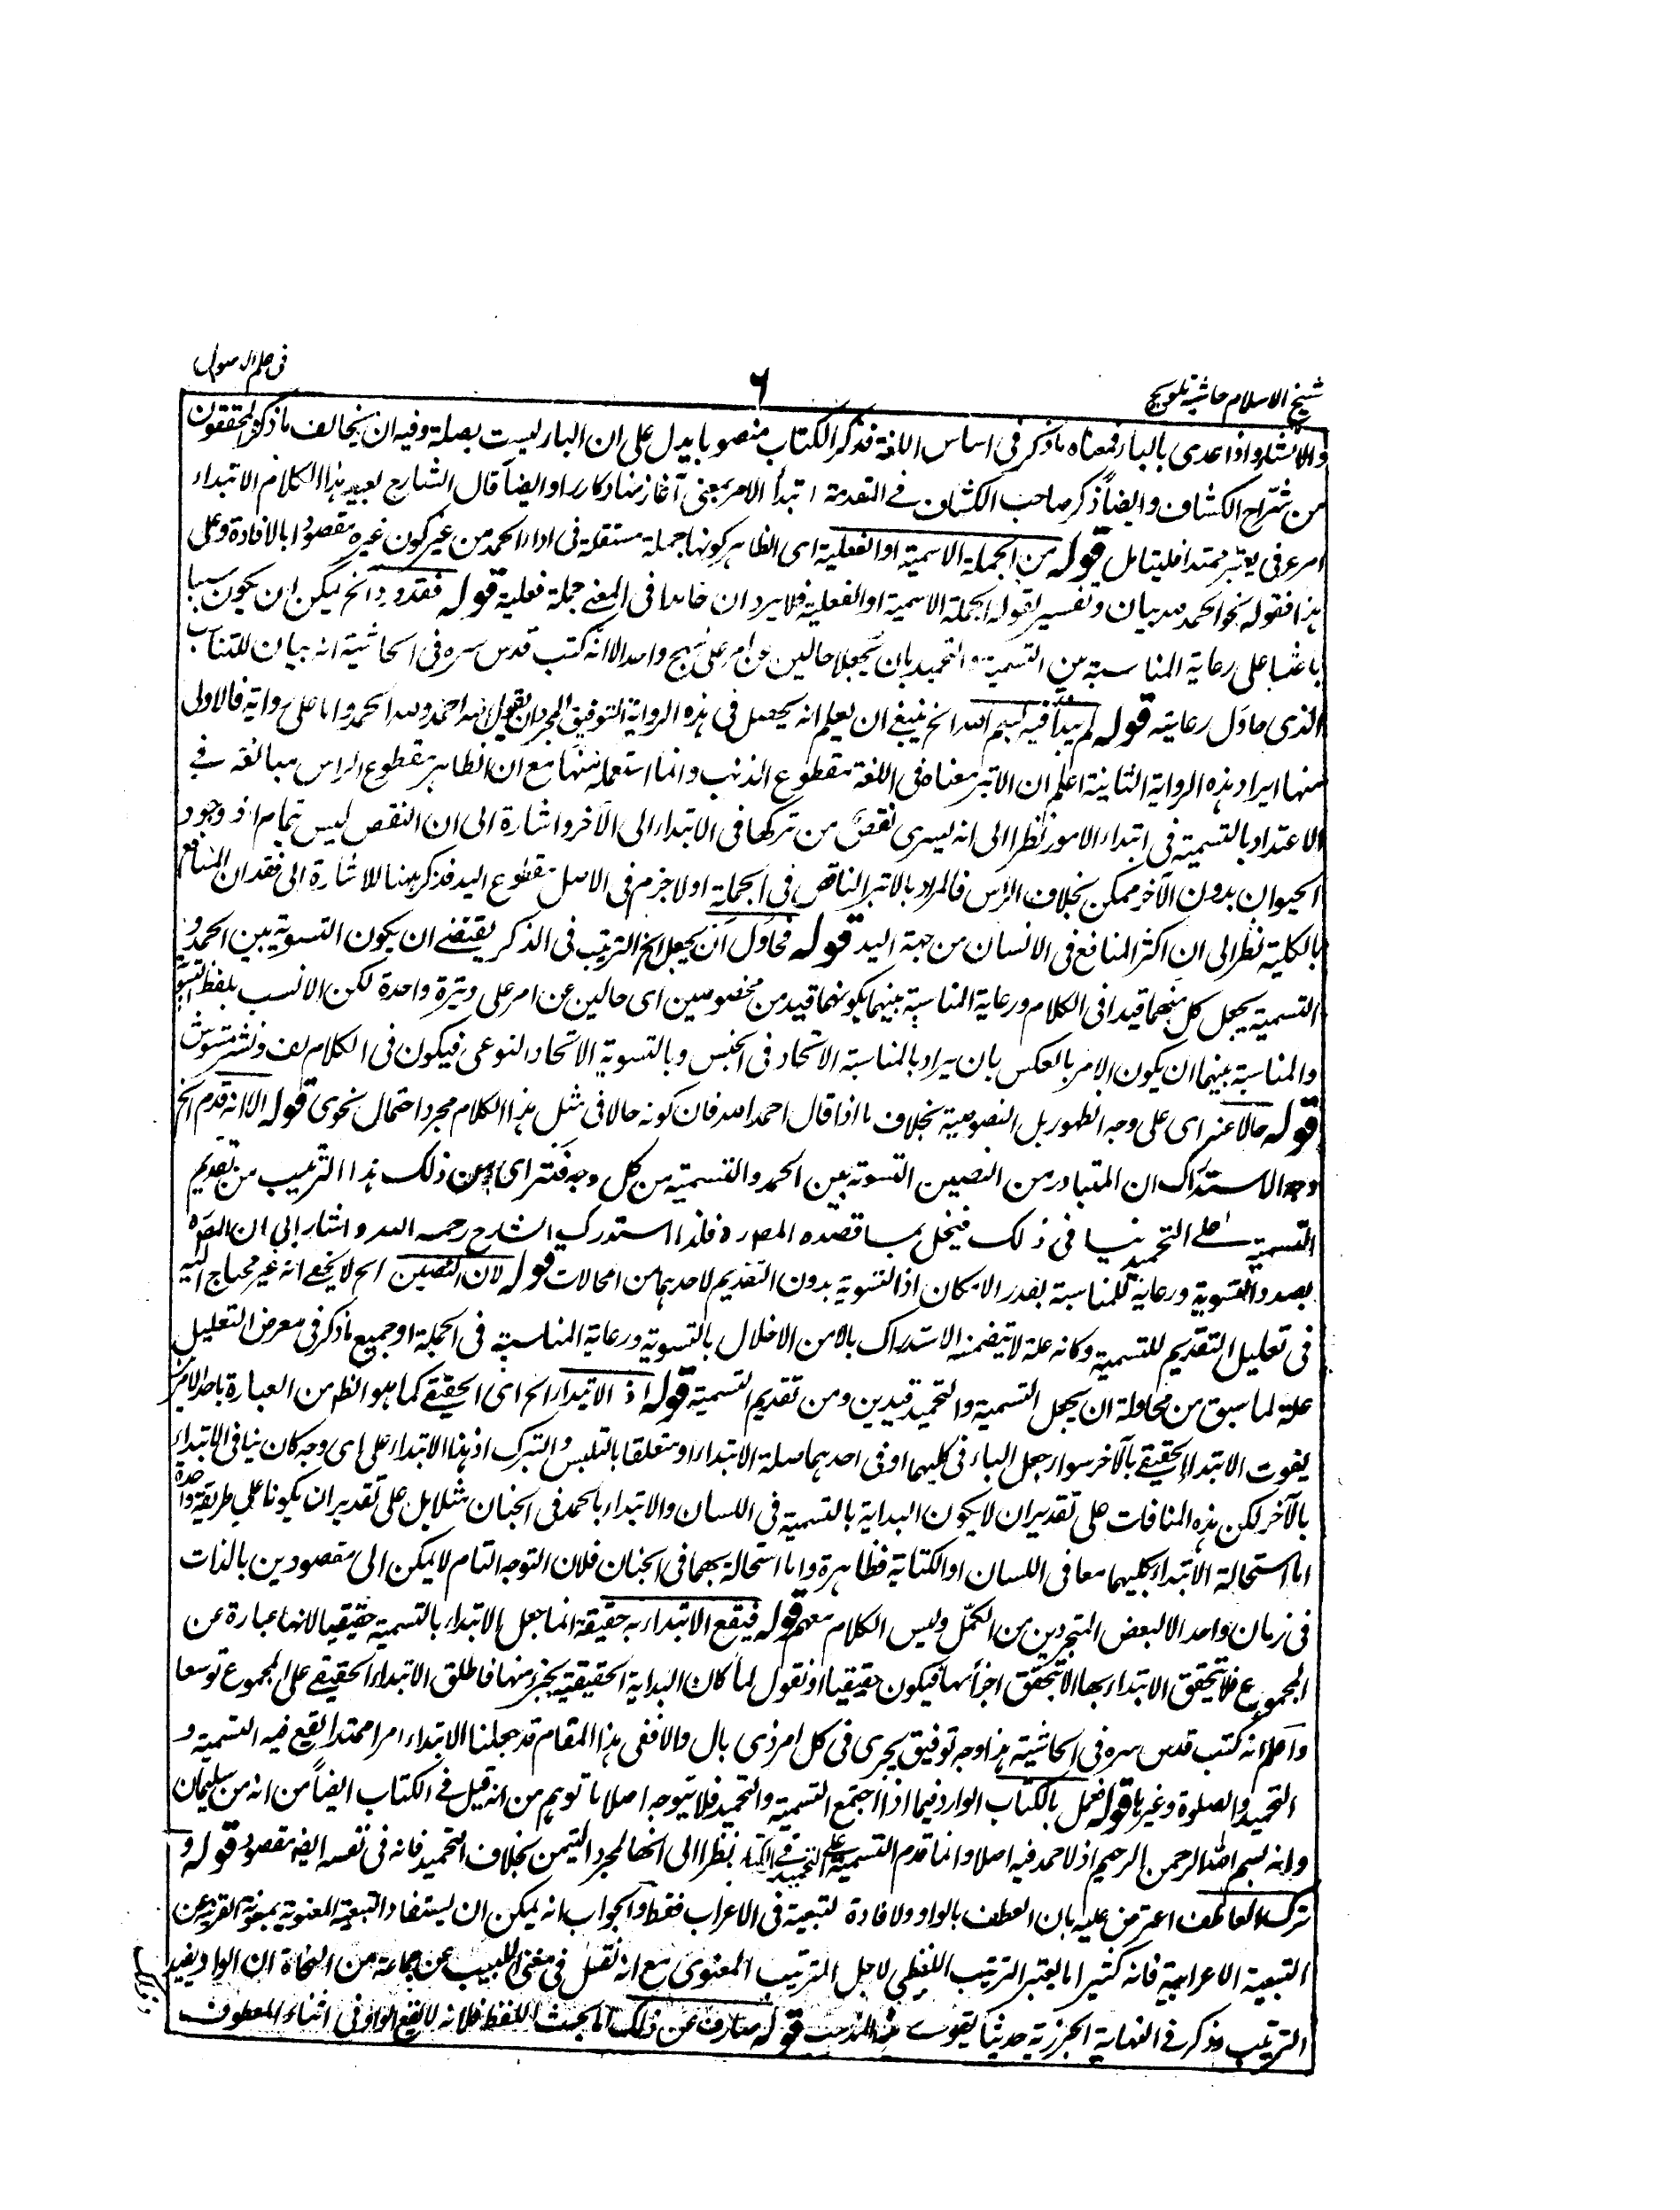 شيخ الاسلام حاشية تلويح
٦
فى علم الاصول
والانشاء واذا عدى بالباء فمعناه ما ذكر فى اساس اللغة فذكر الكتاب منصوبا يدل على ان الباء ليست بصلة وفيه ان يخالف ما ذكره المحققون
من شراح الكشاف وايضاً ذكر صاحب الكشاف فى المقدمة ابتدأ الامر بمعنى آغاز نهاد كار را وايضاً قال الشارح بعيد هذا الكلام الابتداء
امر عرفى يعتبر ممتدا فليتامل قوله من الجملة الاسمية او الفعلية اى الظاهر كونها جملة مستقلة فى اداء الحمد من غير كون غيره مقصودا بالافادة وعلى
هذا فقوله نحو الحمد لله بيان وتفسير لقوله الجملة الاسمية او الفعلية فلا يرد ان حامدا فى المعنى جملة فعلية قوله فقد ورد الخ يمكن ان يكون سببا
باعثا على رعاية المناسبة بين التسمية والتحميد بان تجعلا حالين عن امر على نهج واحد الا انه كتب قدس سره فى الحاشية انه بيان للتناسب
الذى حاول رعايته قوله لم يبدأ فيه ببسم الله الخ ينبغى ان يعلم انه يحصل فى هذه الرواية التوفيق المجرد ان يقول لله احمد ولله الحمد واما على رواية فالاولى
منها ايراد هذه الرواية الثانية اعلم ان الابتر معناه فى اللغة مقطوع الذنب وانما استعمله ههنا مع ان الظاهر مقطوع الراس مبالغة فى
الاعتداد بالتسمية فى ابتداء الامور نظرا الى انه يسرى نقص من تركها فى الابتداء الى الآخر واشارة الى ان النقص ليس بتمام اذ وجود
الحيوان بدون الآخر ممكن بخلاف الرأس فالمراد بالابتر الناقص فى الجملة او لاجزم فى الاصل مقطوع اليد فذكر ههنا للاشارة الى فقدان المنافع
بالكلية نظرا الى ان اكثر المنافع فى الانسان من جهة اليد قوله فحاول ان يجعل الخ الترتيب فى الذكر يقتضى ان يكون التسوية بين الحمد و
التسمية بجعل كل منهما قيدا فى الكلام ورعاية المناسبة بينهما بكونهما قيدين مخصوصين اى حالين عن امر على وتيرة واحدة لكن الانسب بلفظ التسوية
والمناسبة بينهما ان يكون الامر بالعكس بان يراد بالمناسبة الاتحاد فى الجنس وبالتسوية الاتحاد النوعى فيكون فى الكلام لف ونشر مشوش
قوله حالا عنه اى على وجه الظهور بل النصوصية بخلاف ما اذا قال احمد الله فان كونه حالا فى مثل هذا الكلام مجرد احتمال نحوى قوله الا انه قدم الخ
وجه الاستدراك ان المتبادر من النصين التسوية بين الحمد والتسمية من كل وجه فترى اى من ذلك هذا الترتيب من تقديم
التسمية على التحميد ينافى ذلك فيخل بما قصده المص فلذا استدرك الشارح رحمه الله واشار الى ان المص
بصدد التسوية ورعاية للمناسبة بقدر الامكان اذ التسوية بدون التقديم لاحدهما من المحالات قوله لان النصين الخ لا يخفى انه غير محتاج اليه
فى تعليل التقديم للتسمية وكانه علة لا يتضمنه الاستدراك بالامن الاخلال بالتسوية ورعاية المناسبة فى الجملة او جميع ما ذكر فى معرض التعليل
علة لما سبق من محاولة ان يجعل التسمية والتحميد قيدين ومن تقديم التسمية قوله اذ الابتداء الخ اى الحقيقى كما هو الظ من العبارة باحد الامرين
يفوت الابتداء الحقيقى بالآخر سواء جعل الباء فى كليهما او فى احدهما صلة الابتداء او متعلقا بالتلبس والتبرك اذ هذا الابتداء على اى وجه كان ينافى الابتداء
بالآخر لكن هذه المنافات على تقدير ان لا يكون البداية بالتسمية فى اللسان والابتداء بالحمد فى الجنان مثلا بل على تقدير ان يكونا على طريقة واحدة
اما استحالة الابتداء بكليهما معا فى اللسان او الكتابة فظاهرة واما استحالة بهما فى الجنان فلان التوجه التام لا يمكن الى مقصودين بالذات
فى زمان واحد الا لبعض المتجردين من الكمل وليس الكلام معهم قوله فيقع الابتداء به حقيقة انما جعل الابتداء بالتسمية حقيقيا لانها عبارة عن
المجموع فلا يتحقق الابتداء بها الا بتحقق اجزائها فيكون حقيقيا او نقول لما كان البداية الحقيقية بجزء منها فاطلق الابتداء الحقيقى على المجموع توسعا
واعلم انه كتب قدس سره فى الحاشية هذا وجه توفيق يجرى فى كل امر ذى بال والا ففى هذا المقام قد جعلنا الابتداء امرا ممتدا يقع فيه التسمية و
التحميد والصلوة وغيرها قوله فعمل بالكتاب الوارد فيما اذا اجتمع التسمية والتحميد فلا يتوجه اصلا ما توهم من انه قيل فى الكتاب ايضاً من انه من سليمان
وانه بسم الله الرحمن الرحيم اذ لا حمد فيه اصلا وانما قدم التسمية على التحميد فى الكتاب نظرا الى انها لمجرد التيمن بخلاف التحميد فانه فى نفسه ايضا مقصود قوله و
ترك العاطف اعترض عليه بان العطف بالواو ولا فادة لتبعية فى الاعراب فقط والجواب انه يمكن ان يستفاد التبعية المعنوية بمعونة القرينة عن
التبعية الاعرابية فانه كثيرا ما يعتبر الترتيب اللفظى لاجل الترتيب المعنوى مع انه نقل فى مغنى اللبيب عن جماعة من النحاة ان الواو يفيد
الترتيب وذكر فى النهاية الجزرية حديثا يقوى هذا المذهب قوله صارف عن ذلك اما بحسب اللفظ فلانه لا يقع الواو فى اثناء المعطوف